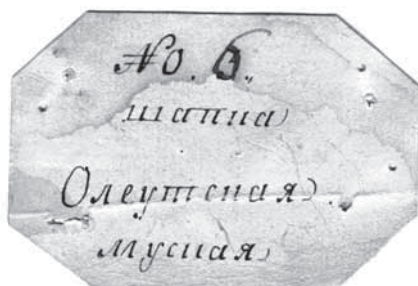 No. 6.
шапка
Олеутская
муская